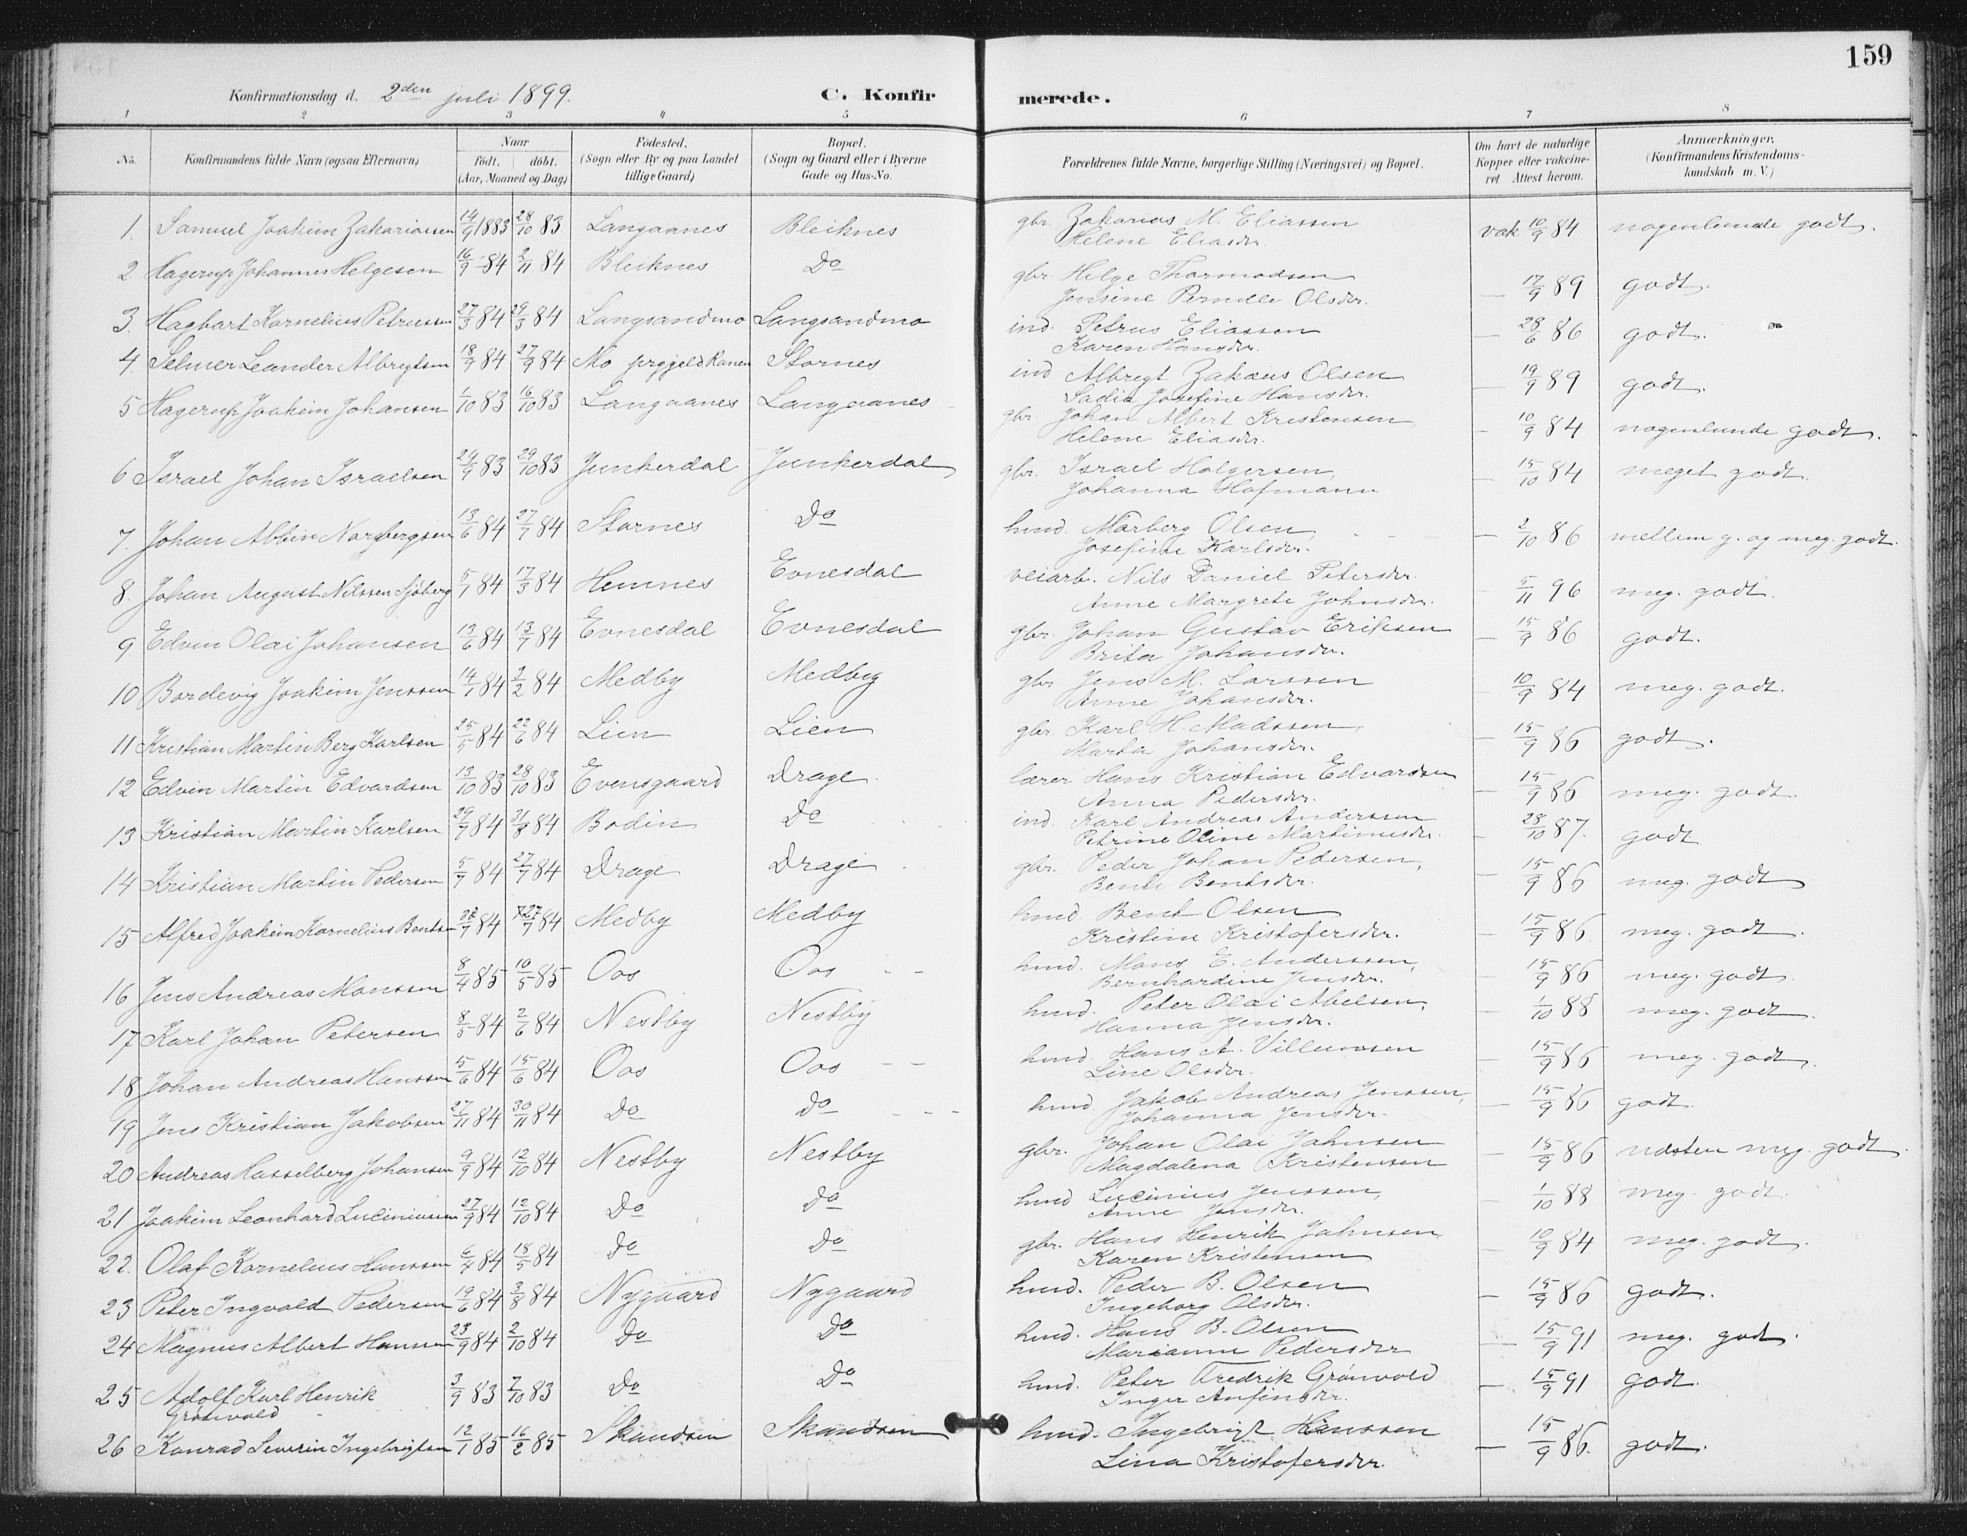 159
Konfirmationsdag d. 2den juli 1899. C. Konfirmerede.
1 2 3 4 5 6 7 8
No. Konfirmandens fulde Navn (ogsaa Efternavn) Naar født, døbt. (Aar, Maaned og Dag) Fødested. (Sogn eller By og paa Landet tillige Gaard) Bopæl. (Sogn og Gaard eller i Byerne Gade og Hus-No. Forældrenes fulde Navne, borgerlige Stilling (Næringsvei) og Bopæl. Om havt de naturlige Kopper eller vakcineret Attest herom. Anmærkninger. (Konfirmandens Kristendomskundskab m. V.)
1. Samuel Joakim Zakariassen 14/9 1883 28/10 83 Langaanes Bleiknes gbr. Zakarias M. Eliassen vak 10/9 84 nogenlunde godt.
Helene Eliasdr.
2. Hagerup Johannes Helgesen 16/9 84 2/11 84 Bleiknes Do gbr. Helge Thormodsen — 17/9 89 godt.
Jensine Pernille Olsdr.
3. Hagbart Kornelius Petrussen 27/3 84 29/3 84 Langsandmo Langsandmo ind. Petrus Eliassen — 28/6 86 godt.
Karen Hansdr.
4. Selmer Leander Albrigtsen 18/9 84 27/9 84 Mo prgjeld Ranen Stornes ind Albrigt Zakæus Olsen — 19/9 89 godt.
Sadia Josefine Hansdr.
5 Hagerup Joakim Johansen 1/10 83 16/10 83 Langaanes Langaanes gbr. Johan Albert Kristensen — 10/9 84 nogenlunde godt.
Helene Eliasdr.
6 Israel Johan Israelsen 29/9 83 29/10 83 Junkerdal Junkerdal gbr. Israel Holgersen, — 15/10 84 meget godt.
Johanna Hofmann
7. Johan Albin Norbergsen 13/6 84 27/7 84 Stornes Do hmd. Norberg Olsen, — 2/10 86 mellem g. og meg. godt.
Josefine Karlsdr.
8. Johan August Nilssen Sjøberg 5/1 84 17/3 84 Hemnes Evnesdal veiarb. Nils Daniel Petersdr. — 5/11 96 meg. godt.
Anne Margrete Johnsdr.
9 Edvin Olai Johansen 13/6 84 13/7 84 Evnesdal Evnesdal gbr. Johan Gustav Eriksen — 15/9 86 godt.
Brita Johansdr.
10 Bordevig Joakim Jenssen 14/1 84 2/2 84 Medby Medby gbr. Jens M. Larssen — 10/9 84 meg. godt.
Anne Johansdr.
11 Kristian Martin Berg Karlsen 25/5 84 22/6 84 Lien Lien gbr. Karl H. Madssen, — 15/9 86 godt.
Marta Johansdr.
12 Edvin Martin Edvardsen 13/10 83 28/10 83 Evensgaard Drage lærer Hans Kristian Edvardsen — 15/9 86 meg. godt.
Anna Pedersdr.
13 Kristian Martin Karlsen 29/7 84 31/8 84 Bodin Do ind. Karl Andreas Anderssen — 28/10 87. godt
Petrine Oline Martinusdr.
14 Kristian Martin Pedersen 5/7 84 27/7 84 Drage Drage gbr. Peder Johan Pedersen, — 15/9 86 meg. godt
Bente Bentsdr.
15 Alfred Joakim Kornelius Bentsen 84 27/7 84 Medby Medby hmd. Bent Olsen — 15/9 86 meg. godt.
Kristine Kristofersdr.
16 Jens Andreas Monssen 8/4 85 10/5 85 Oos Oos hmd. Mons E. Anderssen, — 15/9 86 meg. godt.
Bernhardine Jensdr.
17 Karl Johan Petersen 8/5 84 2/6 84 Nestby Nestby hmd. Peter Olai Abelsen, — 1/10 88 meg. godt.
Hanna Jensdr.
18 Johan Andreas Hanssen 5/6 84 15/6 84 Oos Oos hmd. Hans A. Villumsen — 15/9 86 meg. godt.
Line Olsdr.
19 Jens Kristian Jakobsen 27/11 84 30/11 84 Do Do hmd. Jakob Andreas Jenssen, — 15/9 86 godt.
Johanna Jensdr.
20 Andreas Hasselberg Johansen 9/9 84 12/10 84 Nestby Nestby gbr. Johan Olai Johnsen — 15/9 86 næsten meg. godt.
Magdalena Kristensen
21 Joakim Leonhard Luciniussen 27/9 84 12/10 84 Do Do hmd Lucinius Jenssen, — 1/10 88 meg. godt.
Anne Jensdr.
22. Olaf Kornelius Hanssen 6/4 84 18/5 84 Do Do gbr. Hans Henrik Johnsen, — 10/9 84 meg. godt.
Karen Kristensen
23 Peter Ingvald Pedersen 19/6 84 3/8 84 Nygaard Nygaard hmd. Peder B. Olsen — 15/9 86 godt.
Ingeborg Olsdr.
24 Magnus Albert Hanssen 23/9 84 2/10 84 Do Do hmd. Hans B. Olsen — 15/9 91 meg. godt.
Marianne Pedersdr
25 Adolf Karl Henrik 3/9 83 7/10 83 Do Do hmd. Peter Fredrik Grönvold — 15/9 91 godt.
Grönvold Inger Anfinsdr.
26 Konrad Severin Ingebrigtsen 12/1 85 16/2 85 Skandsen Skandsen hmd. Ingebrigt Hanssen — 15/9 86. godt.
Lina Kristofersdr.